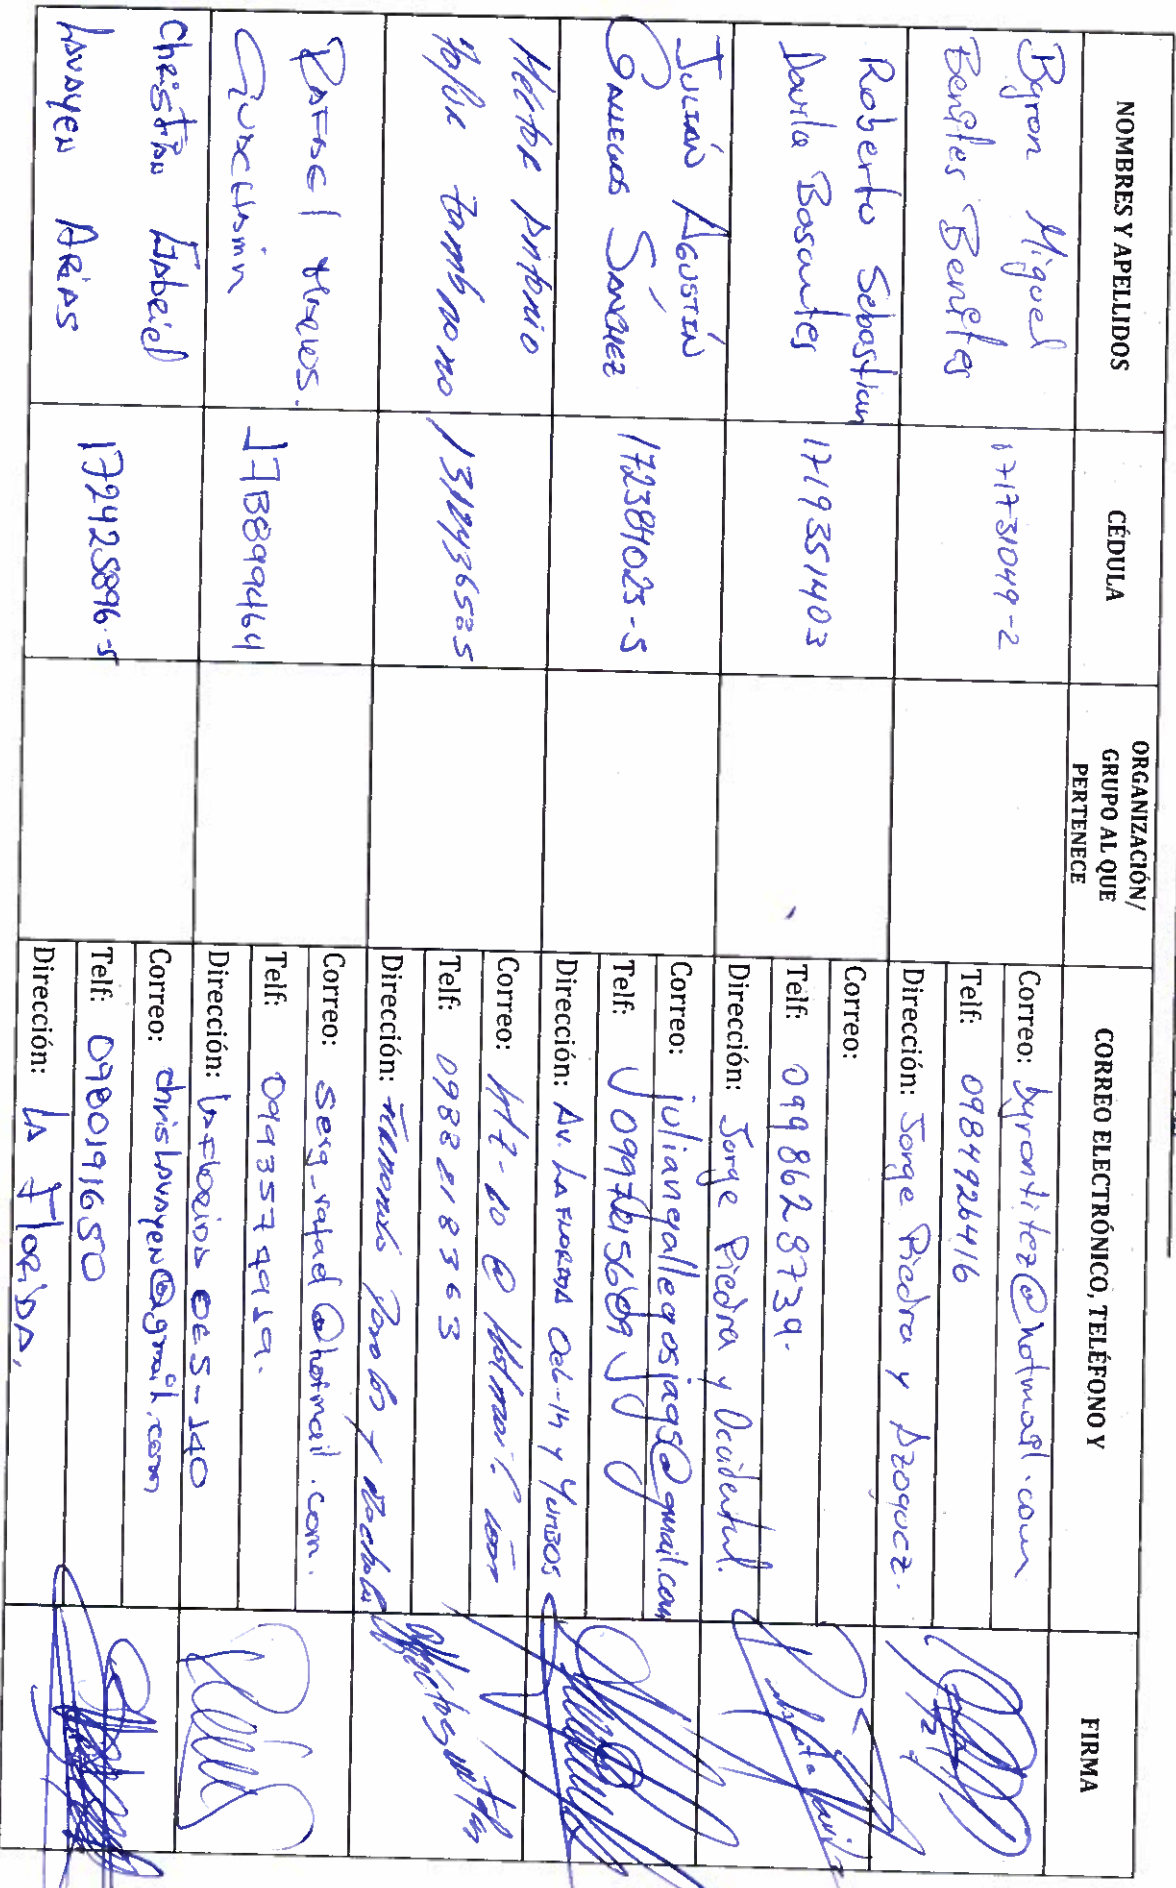 NOMBRES Y APELLIDOS
CÉDULA
ORGANIZACIÓN/
GRUPO AL QUE
PERTENECE
CORREO ELECTRÓNICO, TELÉFONO Y
FIRMA
Byron Miguel
Benites Benites
171731049-2
Correo: byrontitez@hotmail.com
Telf: 0984926416
Dirección: Jorge Piedra y Azoguez.
Roberto Sebastian
Davila Basantes
1719351403
Correo:
Telf: 0998628739.
Dirección: Jorge Piedra y Occidental.
Julián Agustín
Gallegos Sánchez
172384025-5
Correo: juliangallegosjags@gmail.com
Telf:
Dirección: Av. La Florida Oe6-14 y Yumbos
Héctor Antonio
Correo:
Telf: 0988218363
Dirección:
Rafael
JJB899464
Correo: serg_rafael@hotmail.com.
Telf: 0993574919.
Dirección: La Florida OE5-140
Christian Gabriel
Lavayen Arias
172425896-5
Correo: chrislavayen@gmail.com
Telf: 0980191650
Dirección: La Florida,